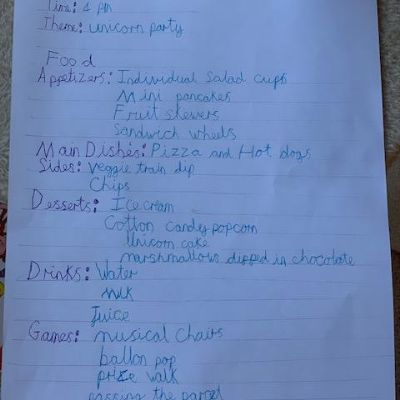 Time: 4 pm
Theme: unicorn party
Food
Appetizers: Individual salad cups
Mini pancakes
Fruit skewers
Sandwich wheels
Main Dishes: Pizza and Hot dogs
Sides: veggie train dip
Chips
Desserts: Ice cream
Cotton candy popcorn
Unicorn cake
marshmallows dipped in chocolate
Drinks: Water
Milk
Juice
Games: musical chairs
ballon pop
prize walk
passing the parcel